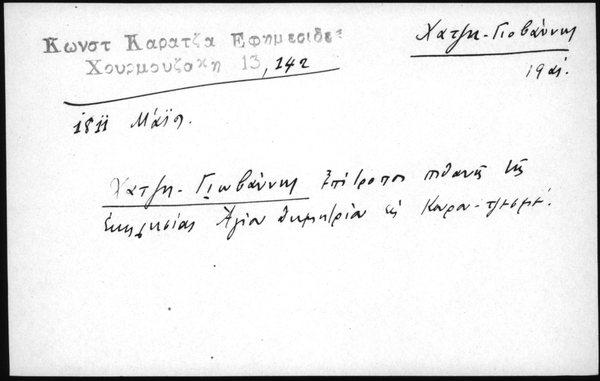 Κωνστ Καρατζα Εφημεριδες
Χουρμουζακη 13, 142
Χατζη-Γιοβάννης
19 αἰ.
1811 Μάϊο
Χατζη-Γιωβάννης ἐπίτροπος πιθανῶς τῆς
ἐκκλησίας Ἁγίου Δημητρίου εἰς Καρα-τζεσμέ.